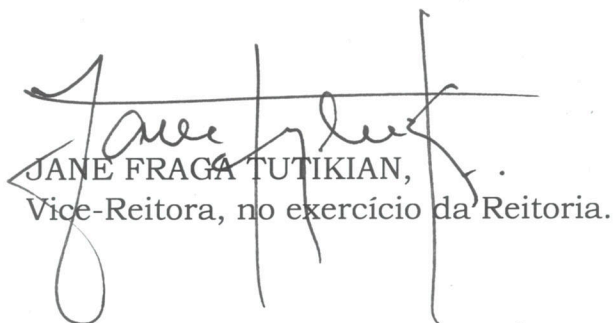 JANE FRAGA TUTIKIAN,
Vice-Reitora, no exercício da Reitoria.